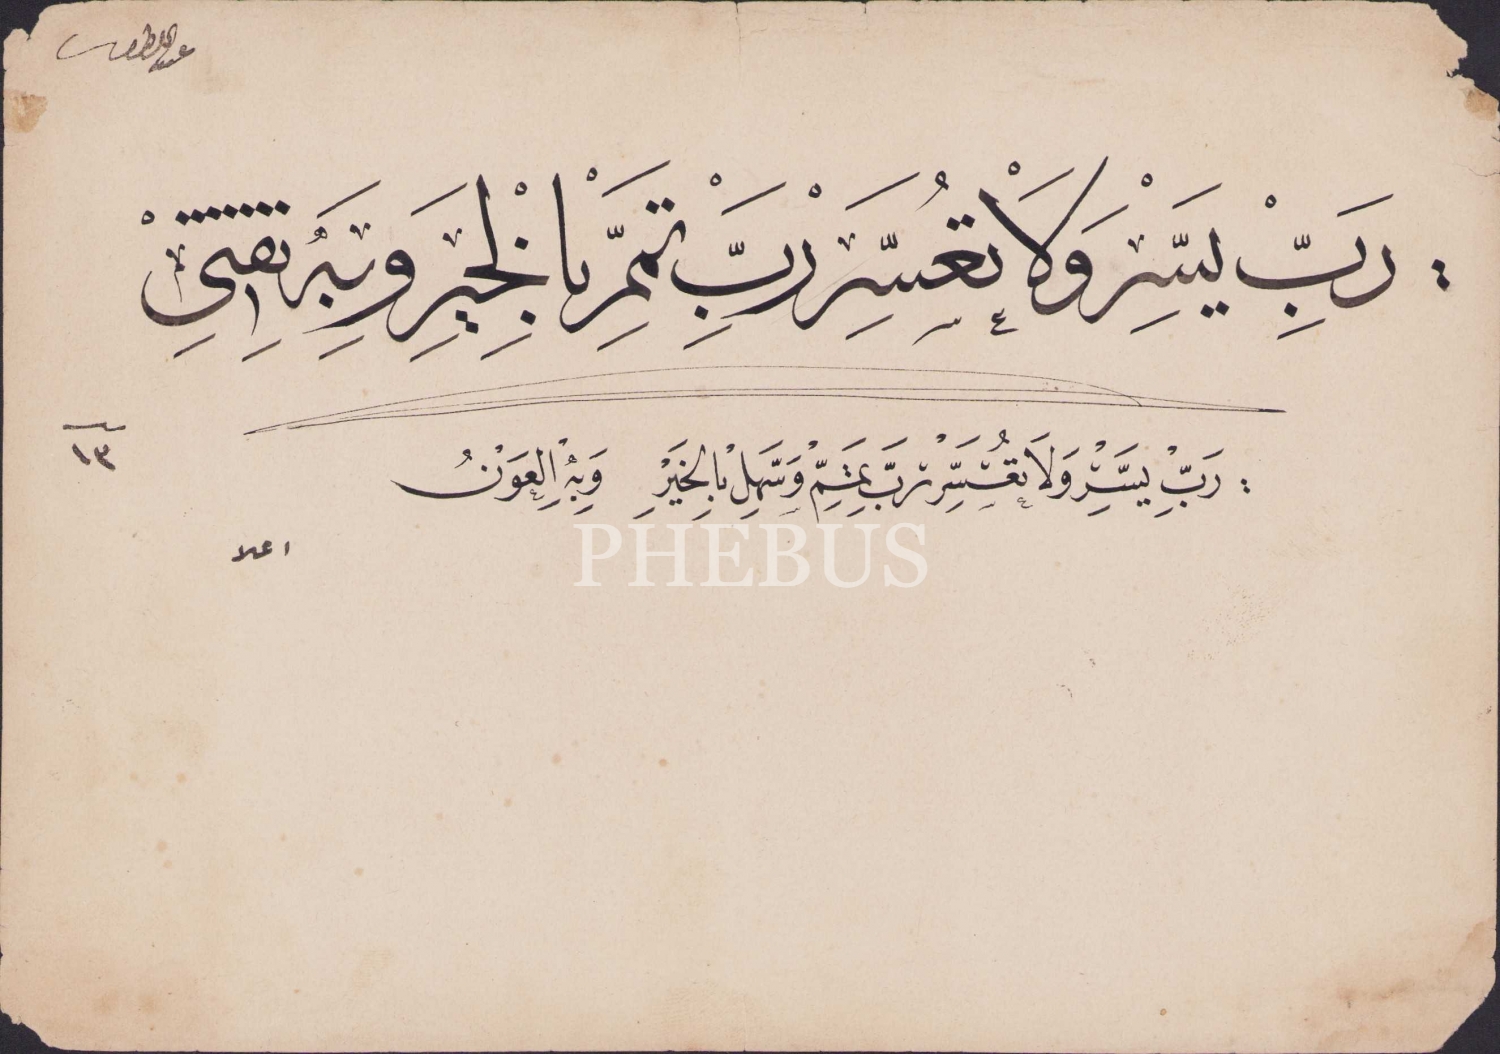 عبداللطيف
رَبِّ يَسِّرْ وَلَا تُعَسِّرْ رَبِّ تَمِّمْ بِالْخَيْرِ وَبِهِ ثِقَتِي
١٣
رَبِّ يَسِّرْ وَلَا تُعَسِّرْ رَبِّ تَمِّمْ وَسَهِّلْ بِالْخَيْرِ وَبِهِ الْعَوْنُ
اعلا
PHEBUS